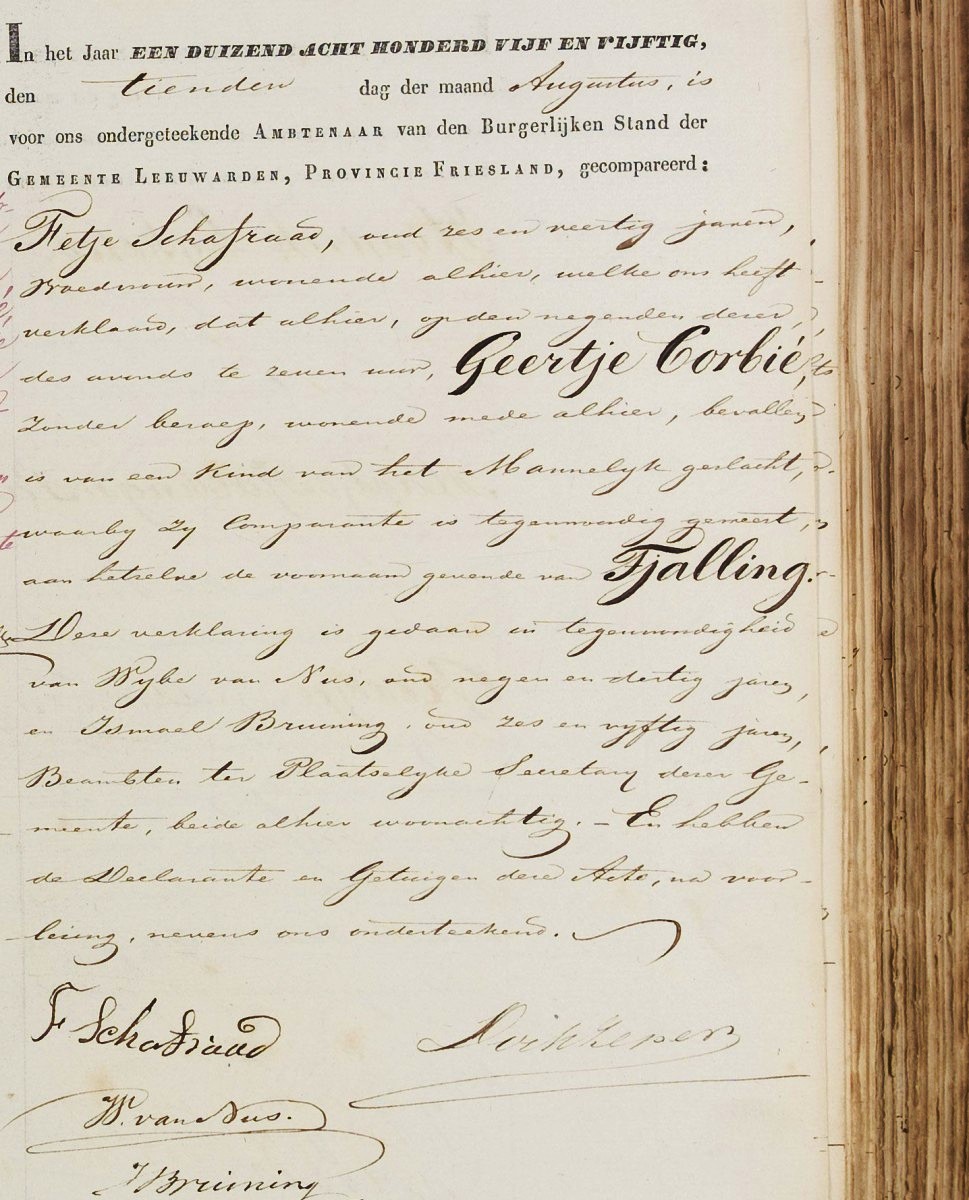 In het Jaar EEN DUIZEND ACHT HONDERD VIJF EN VIJFTIG,
den tienden dag der maand Augustus, is
voor ons ondergeteekende AMBTENAAR van den Burgerlijken Stand der
GEMEENTE LEEUWARDEN, PROVINCIE FRIESLAND, gecompareerd:
Fetje Schafraad, oud zes en veertig jaren,
Vroedvrouw, wonende alhier, welke ons heeft
verklaard, dat alhier, op den negenden dezer,
des avonds te zeven uur, Geertje Corbié,
zonder beroep, wonende mede alhier, bevallen
is van een Kind van het Mannelyk geslacht,
waarby zy Comparante is tegenwoordig geweest,
aan hetzelve de voornaam gevende van Tjalling.
Deze verklaring is gedaan in tegenwoordigheid
van Wybe van Nus, oud negen en dertig jaren,
en Ismael Bruining, oud zes en vyftig jaren,
Beambten ter Plaatselyke Secretary dezer Ge-
meente, beide alhier woonachtig. – En hebben
de Declarante en Getuigen deze Acte, na voor-
lezing, nevens ons onderteekend.
F Schafraad
W. van Nus.
Bruining